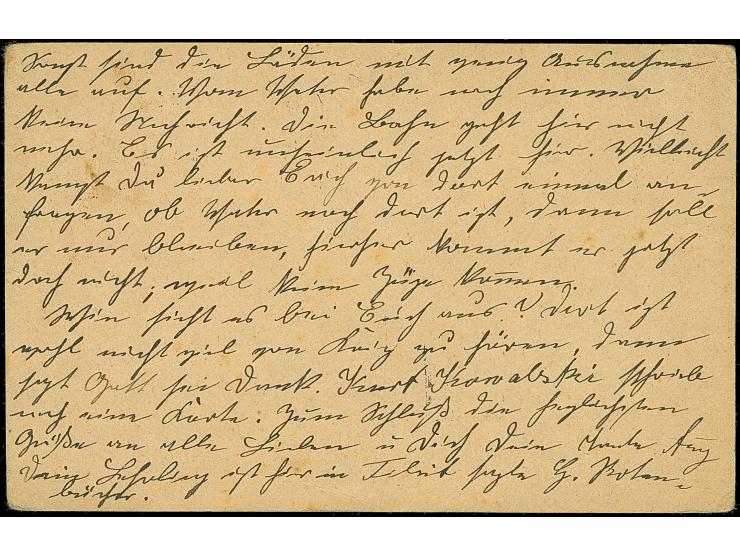 Sonst sind die Läden mit wenig Ausnahme
alle auf. Vom Vater habe noch immer
keine Nachricht. Die Bahn geht hier nicht
mehr. Es ist unheimlich jetzt hier. Vielleicht
kannst Du lieber Erich von dort einmal an-
fragen, ob Vater noch dort ist, dann soll
er nur bleiben, hierher kommt er jetzt
doch nicht, weil keine Züge kommen.
Wie sieht es bei Euch aus? Dort ist
wohl nicht viel von Krieg zu hören, dann
sagt Gott sei Dank. Kurt Kowalski schrieb
noch eine Karte. Zum Schluß die herzlichsten
Grüße an alle Lieben u Dich Dein Tante
Dein Lehrling ist hier in sagte H. Roten-
bücher.